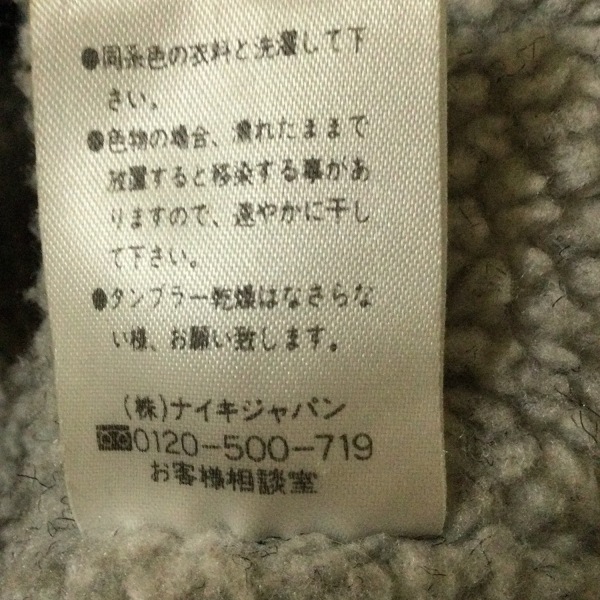 ●同系色の衣料と洗濯して下
さい。
●色物の場合、濡れたままで
放置すると移染する事があ
りますので、速やかに干し
て下さい。
●タンブラー乾燥はなさらな
い様、お願い致します。
(株)ナイキジャパン
0120-500-719
お客様相談室